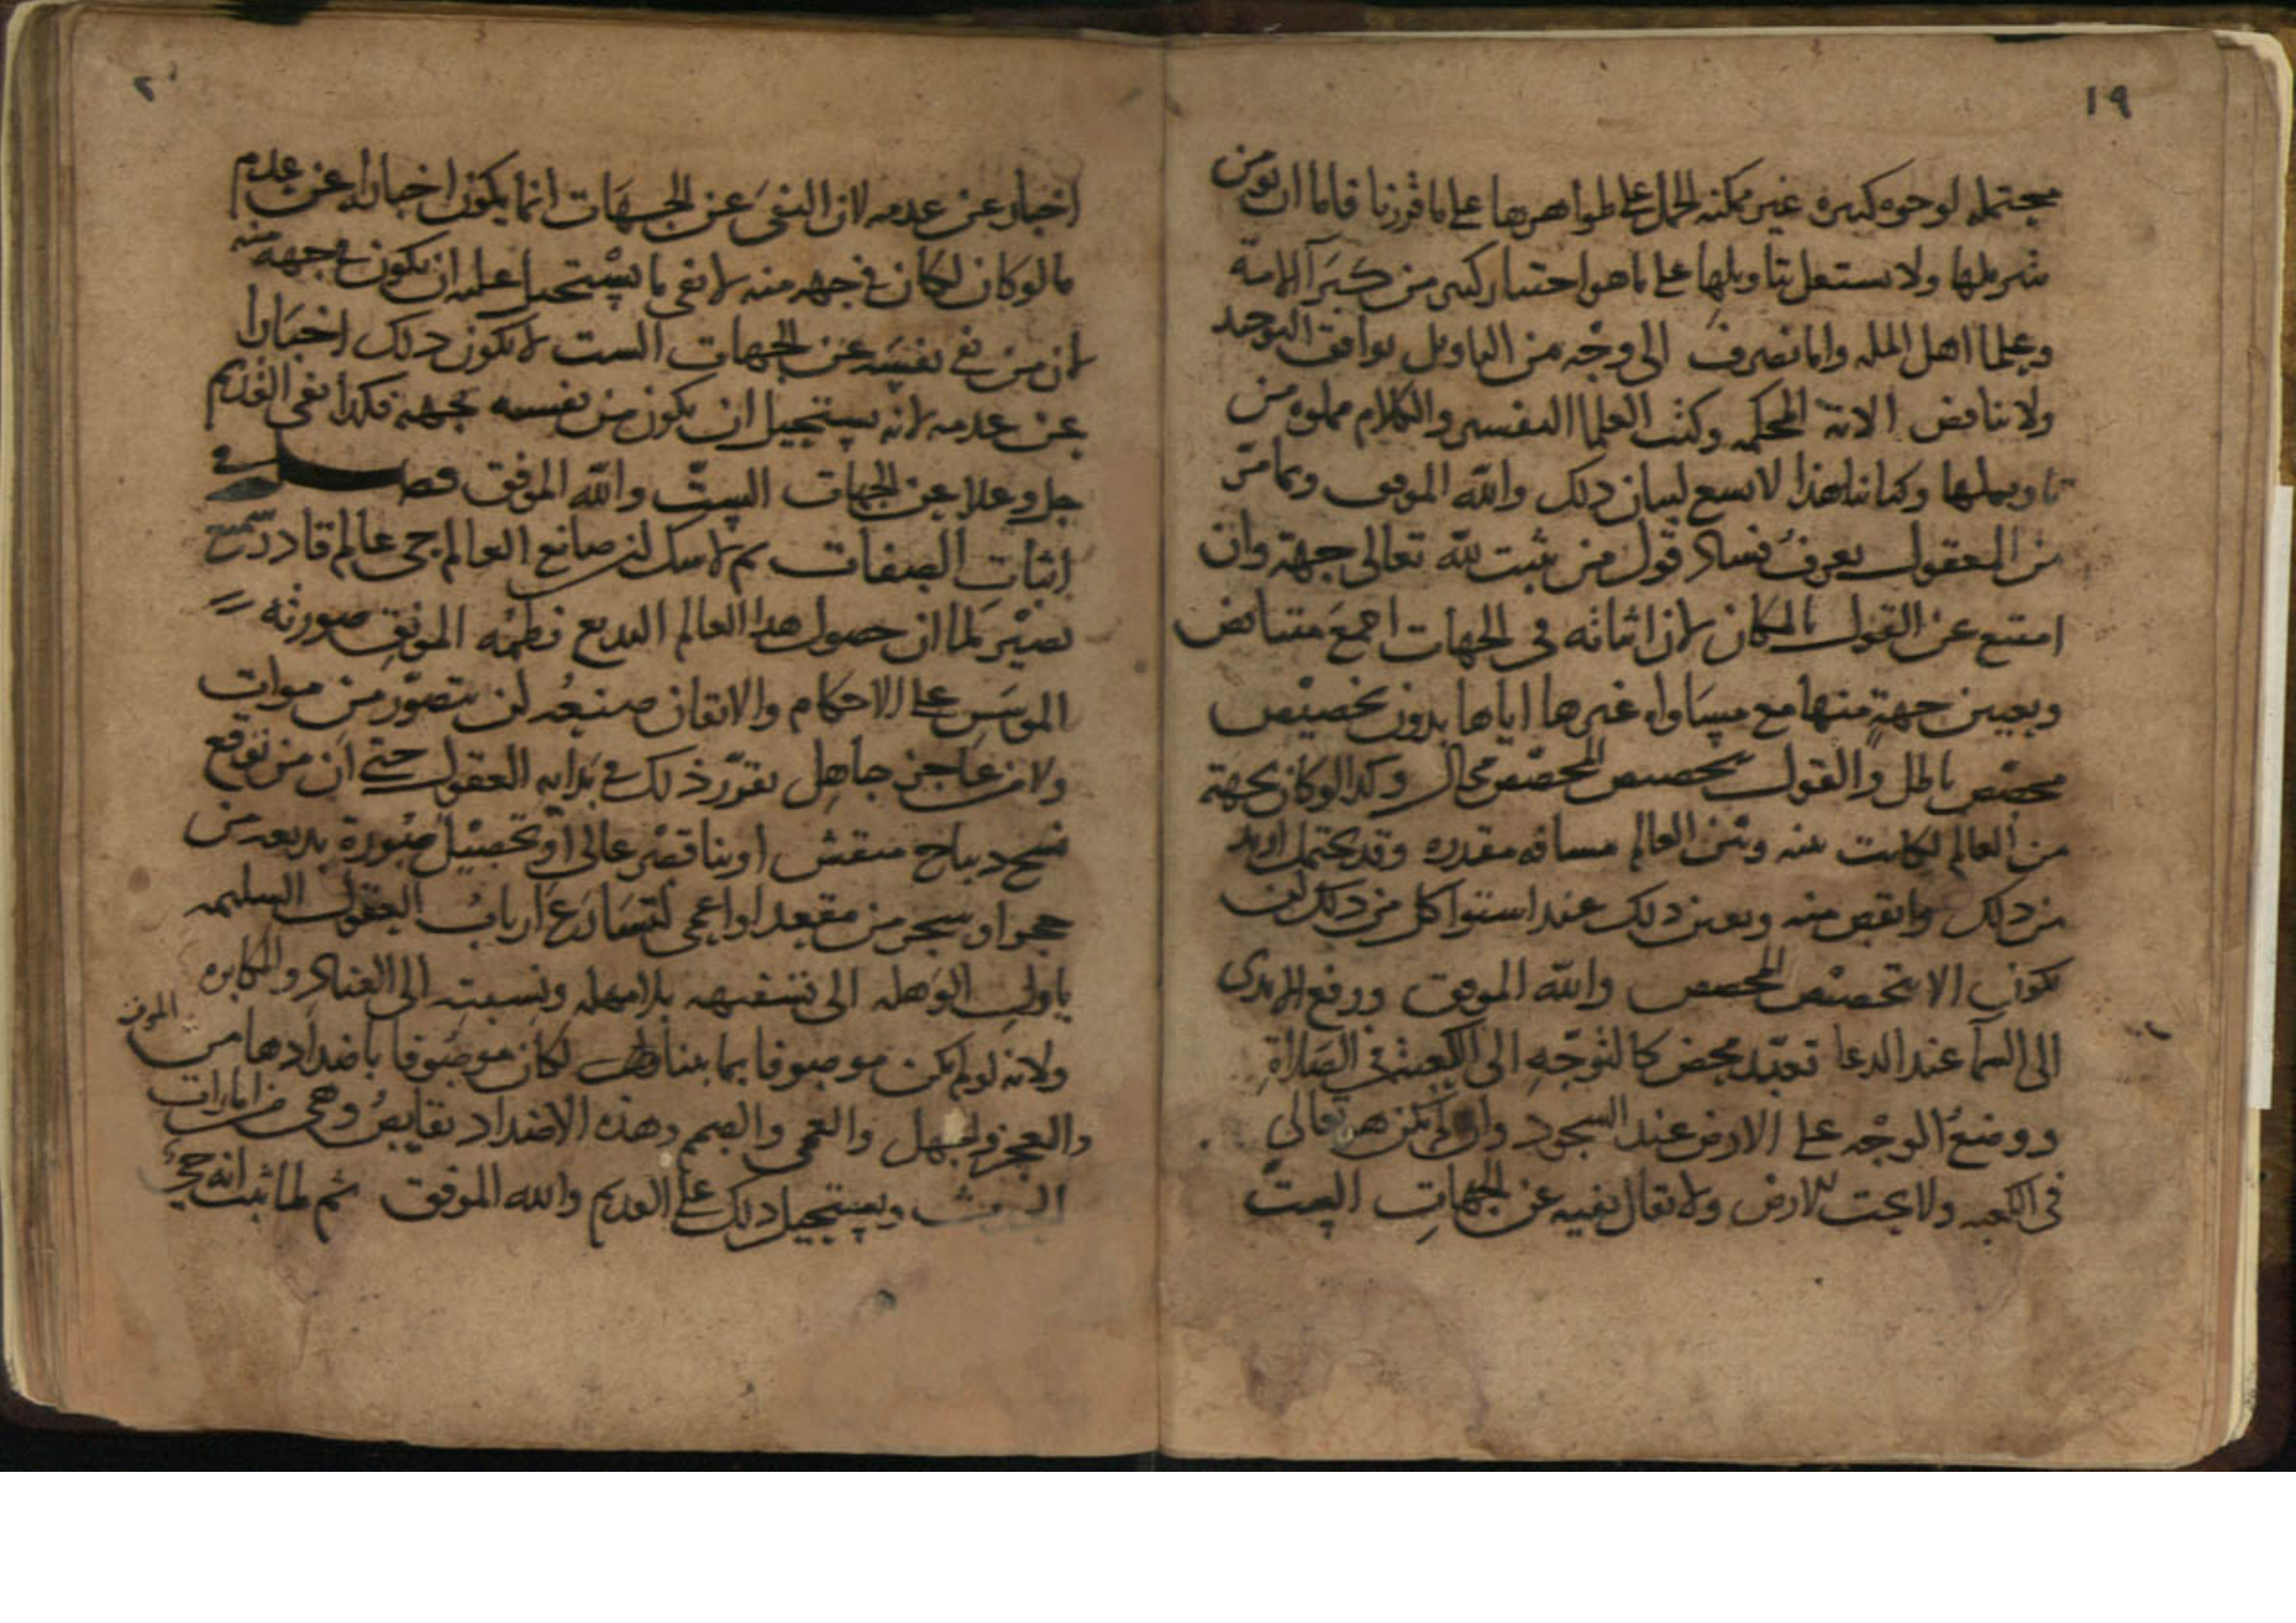 ١٩
محتمله لوجوه كثيرة غير ممكنه الحمل على ظواهرها على ما قررنا فاما ان نومن
بتنزيلها ولا نشتغل بتاويلها على ما هو اختيار كثير من كبرآ الامة
وعلما اهل المله واما نصرف الى وجه من التاويل يوافق التوحيد
ولا يناقض الاية المحكمه وكتب العلما التفسير والكلام مملوه من
تاويلها وكتابنا هذا لا يسع لبيان ذلك والله الموفق وبما مر
من المعقول يعرف فساد قول من يثبت لله تعالى جهة وان
امتنع عن القول بالمكان لان اثباته في الجهات اجمع متناقض
وتعيين جهة منها مع مساواه غيرها اياها بدون تخصيص
مخصص باطل والقول بتخصيص المخصص محال وكذا لو كان بجهة
من العالم لكانت بينه وبين العالم مسافه مقدره وقد يحتمل ازيد
من ذلك وانقص منه وتعين ذلك عند استوا كل من ذلك لن
يكون الا بتخصيص المخصص والله الموفق ورفع الايدى
الى السمآ عند الدعا تعبد محض كالتوجه الى الكعبة في الصلاة
ووضع الوجه على الارض عند السجود وان لم يكن هو تعالى
في الكعبه ولا تحت الارض ولا يقال نفيه عن الجهات الست
٢٠
اخبار عن عدمه لان النفي عن الجهات انما يكون اخبارا عن عدم
ما لو كان لكان في جهه منه لا نفي ما يستحيل عليه ان يكون في جهه منه
لان من نفى نفسه عن الجهات الست لا يكون ذلك اخبارا
عن عدمه لانه يستحيل ان يكون من نفسه بجهة فكذا نفي القديم
جل وعلا عن الجهات الست والله الموفق فصل في
اثبات الصفات ثم لا شك ان صانع العالم حى عالم قادر سميع
بصير لما ان حصول هذا العالم البديع نظمه المونق صورته
الموسس على الاحكام والاتقان صنيعه لن يتصور من موات
ولا من عاجز جاهل تقرر ذلك في بداية العقول حتى ان من توقع
نسج ديباج منقش او بنا قصر عالى او تحصيل صورة بديعه من
حجر او شجر من مقعد او اعمى لتسارع ارباب العقول السليمه
باول الوهله الى تسفيهه بلا مهله ونسبته الى العناد والمكابره
ولانه لو لم يكن موصوفا بما بينا لكان موصوفا باضدادها من الموت
والعجز والجهل والعمى والصمم وهذه الاضداد نقايص وهى من امارات
الحدث ويستحيل ذلك على القديم والله الموفق ثم لما ثبت انه حي